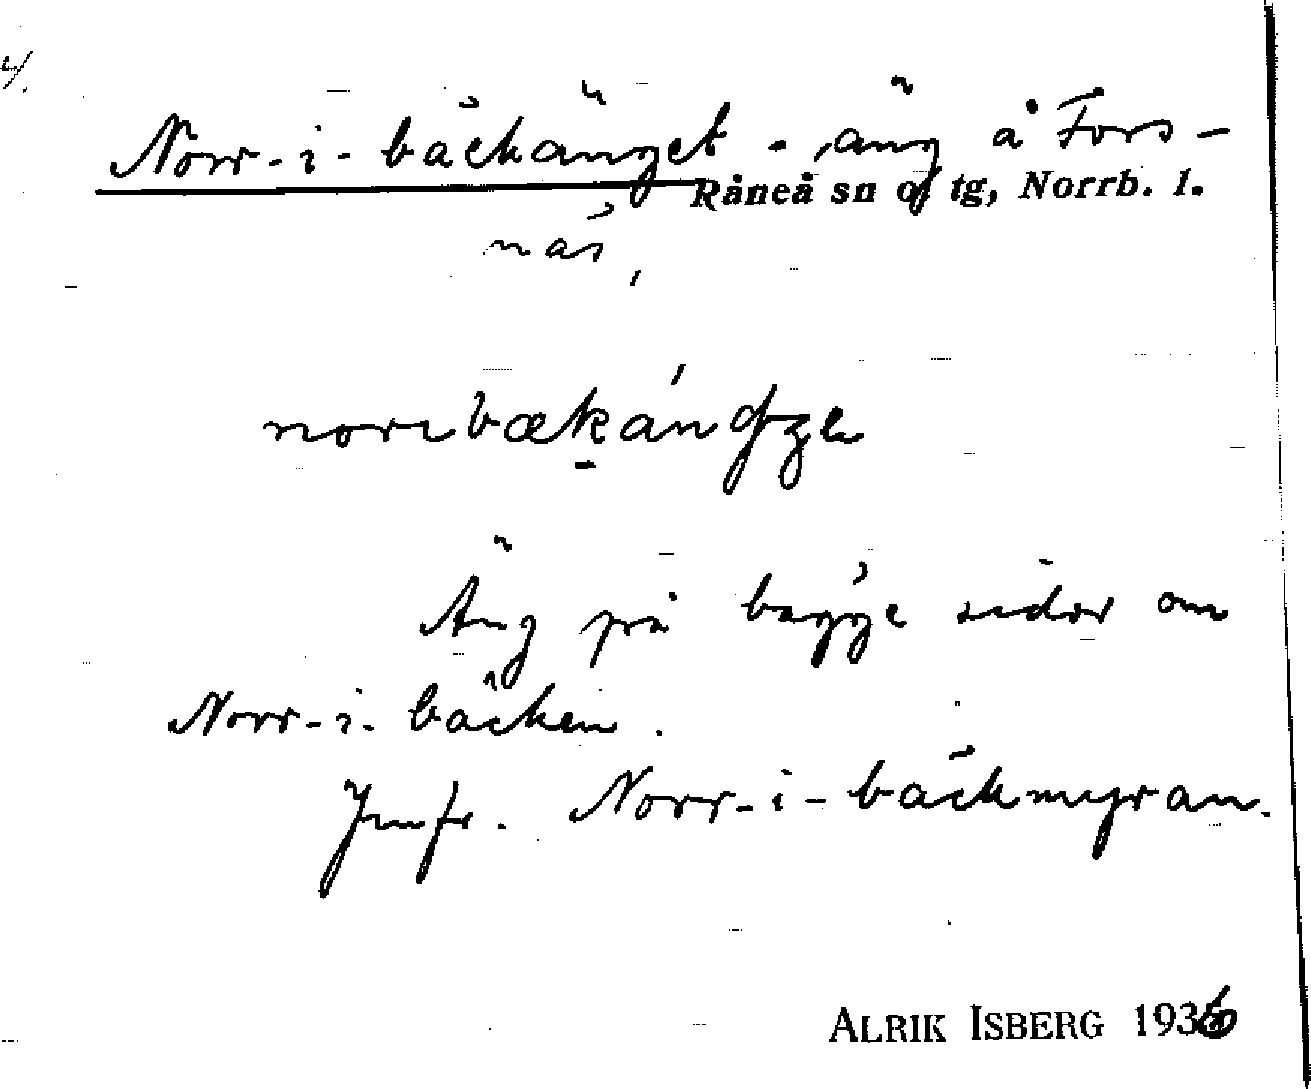 4/.
Norr-i-bäckänget - äng å Fors-
Råneå sn o tg, Norrb. l.
näs,
Äng på bägge sidor om
Norr-i-bäcken.
Jmfr. Norr-i-bäckmyran.
ALRIK ISBERG 1936